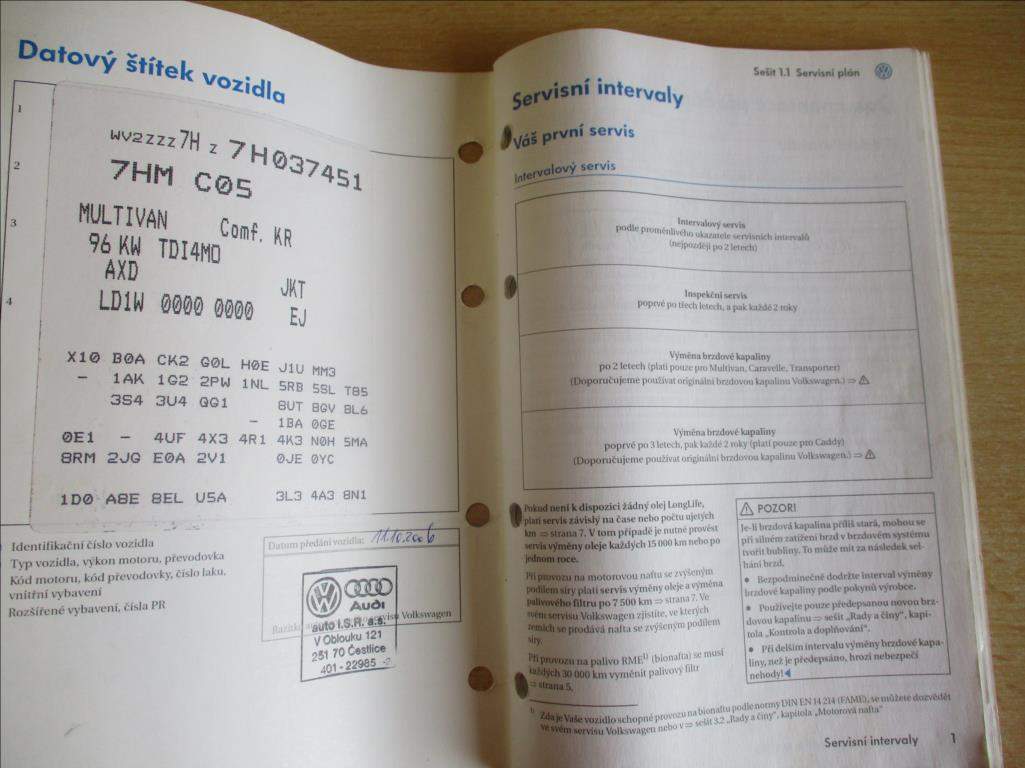 Datový štítek vozidla
1
WV2ZZZ7H Z 7H037451
2
7HM C05
3
MULTIVAN Comf. KR
96 KW TDI4MO
AXD JKT
4
LD1W 0000 0000 EJ
X10 B0A CK2 G0L H0E J1U MM3
- 1AK 1G2 2PW 1NL 5RB 5SL T85
3S4 3U4 QG1 8UT 8GV 8L6
- 1BA 0GE
0E1 - 4UF 4X3 4R1 4K3 N0H 5MA
8RM 2JG E0A 2V1 0JE 0YC
1D0 A8E 8EL U5A 3L3 4A3 8N1
Identifikační číslo vozidla
Typ vozidla, výkon motoru, převodovka
Kód motoru, kód převodovky, číslo laku,
vnitřní vybavení
Rozšířené vybavení, čísla PR
Datum předání vozidla: 11.10.2006
Audi
servisu Volkswagen
auto I.S.R. a.s.
V Oblouku 121
251 70 Čestlice
401 - 22985 -2
Sešit 1.1 Servisní plán
Servisní intervaly
Váš první servis
Intervalový servis
Intervalový servis
podle proměnlivého ukazatele servisních intervalů
(nejpozději po 2 letech)
Inspekční servis
poprvé po třech letech, a pak každé 2 roky
Výměna brzdové kapaliny
po 2 letech (platí pouze pro Multivan, Caravelle, Transporter)
(Doporučujeme používat originální brzdovou kapalinu Volkswagen.) ⇒ ⚠
Výměna brzdové kapaliny
poprvé po 3 letech, pak každé 2 roky (platí pouze pro Caddy)
(Doporučujeme používat originální brzdovou kapalinu Volkswagen.) ⇒ ⚠
Pokud není k dispozici žádný olej LongLife,
platí servis závislý na čase nebo počtu ujetých
km ⇒ strana 7. V tom případě je nutné provést
servis výměny oleje každých 15 000 km nebo po
jednom roce.
Při provozu na motorovou naftu se zvýšeným
podílem síry platí servis výměny oleje a výměna
palivového filtru po 7 500 km ⇒ strana 7. Ve
svém servisu Volkswagen zjistíte, ve kterých
zemích se prodává nafta se zvýšeným podílem
síry.
Při provozu na palivo RME1) (bionafta) se musí
každých 30 000 km vyměnit palivový filtr
⇒ strana 5.
⚠ POZOR!
Je-li brzdová kapalina příliš stará, mohou se
při silném zatížení brzd v brzdovém systému
tvořit bubliny. To může mít za následek sel-
hání brzd.
• Bezpodmínečně dodržte interval výměny
brzdové kapaliny podle pokynů výrobce.
• Používejte pouze předepsanou novou brz-
dovou kapalinu ⇒ sešit „Rady a činy“, kapi-
tola „Kontrola a doplňování“.
• Při delším intervalu výměny brzdové kapa-
liny, než je předepsáno, hrozí nebezpečí
nehody!◀
1) Zda je Vaše vozidlo schopné provozu na bionaftu podle normy DIN EN 14 214 (FAME), se můžete dozvědět
ve svém servisu Volkswagen nebo v ⇒ sešit 3.2 „Rady a činy“, kapitola „Motorová nafta“
Servisní intervaly 1